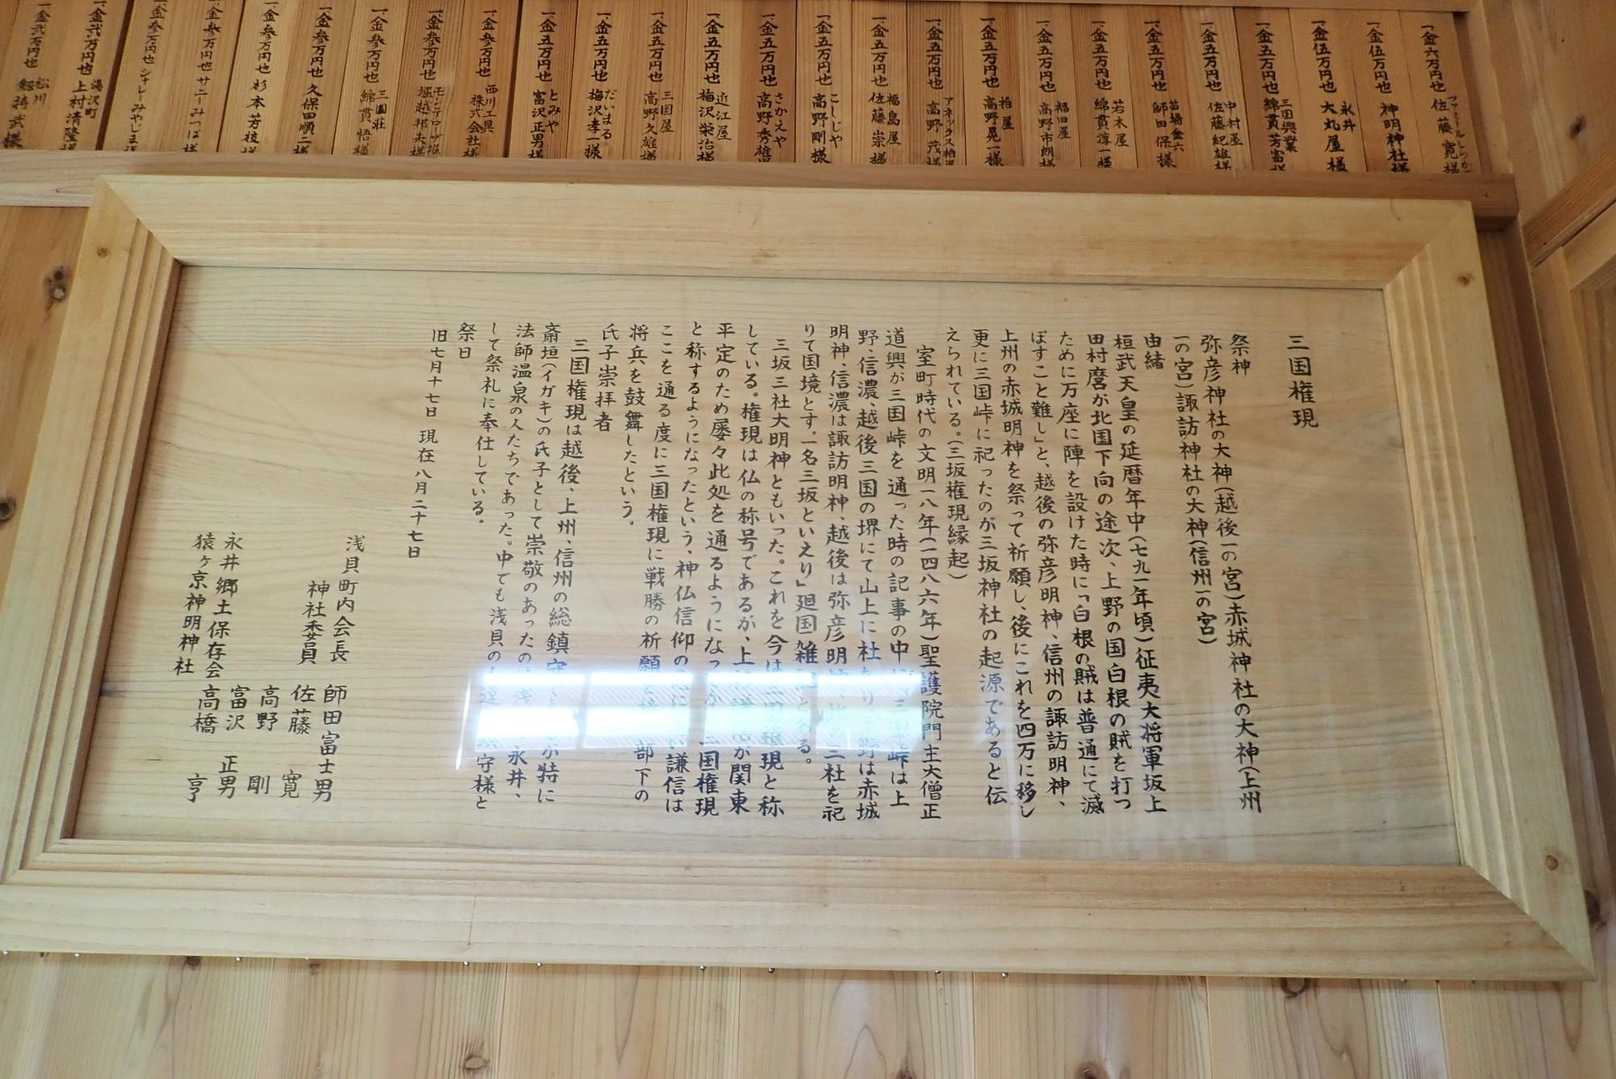 一金六万円也 佐藤 寛様
一金伍万円也 神明神社様
一金伍万円也 永井 大丸屋様
一金五万円也 三国興業 綿貫芳富様
一金五万円也 中村屋 佐藤紀雄様
一金五万円也 苗場金六 師田 保様
一金五万円也 若木屋 綿貫譲一様
一金五万円也 福田屋 高野市朗様
一金五万円也 柏屋 高野晃一様
一金五万円也 アネックス柏田 高野 茂様
一金五万円也 福島屋 佐藤 崇様
一金五万円也 こしじや 高野 剛様
一金五万円也 さかえや 高野秀雄
一金五万円也 近江屋 梅沢栄治様
一金五万円也 三国屋 高野久雄様
一金五万円也 だいまる 梅沢孝一様
一金五万円也 とみや 富沢正男様
一金参万円也 西川工具 株式会社様
一金参万円也 堀越邦夫様
一金参万円也 三国荘 綿貫 悟様
一金参万円也 久保田順二様
一金参万円也 杉本芳枝様
一金参万円也 サニーみつは様
一金参万円也 シャレーみやじま様
一金弐万円也 湯沢町 上村清隆様
一金弐万円也 松川
三国権現
祭神
弥彦神社の大神(越後一の宮)赤城神社の大神(上州
一の宮)諏訪神社の大神(信州一の宮)
由緒
桓武天皇の延暦年中(七九一年頃)征夷大将軍坂上
田村麿が北国下向の途次、上野の国白根の賊を打つ
ために万座に陣を設けた時に「白根の賊は普通にて滅
ぼすこと難し」と、越後の弥彦明神、信州の諏訪明神、
上州の赤城明神を祭って祈願し、後にこれを四万に移し
更に三国峠に祀ったのが三坂神社の起源であると伝
えられている。(三坂権現縁起)
室町時代の文明一八年(一四八六年)聖護院門主大僧正
道興が三国峠を通った時の記事の中 峠は上
野、信濃、越後三国の堺にて山上に社 野は赤城
明神、信濃は諏訪明神、越後は弥彦明 三社を祀
りて国境とす。一名三坂といえり」廻国雑 る。
三坂三社大明神ともいった。これを今は 権現と称
している。権現は仏の称号であるが、上 が関東
平定のため屡々此処を通るようにな 三国権現
と称するようになったという、神仏信仰の 謙信は
ここを通る度に三国権現に戦勝の祈願 部下の
将兵を鼓舞したという。
氏子崇拝者
三国権現は越後、上州、信州の総鎮守 が特に
斎垣(イガキ)の氏子として崇敬のあったの 永井、
法師温泉の人たちであった。中でも浅貝の 守様と
して祭礼に奉仕している。
祭日
旧七月十七日 現在八月二十七日
浅貝町内会長 師田富士男
神社委員 佐藤 寛
高野 剛
永井郷土保存会 富沢 正男
猿ヶ京神明神社 高橋 亨